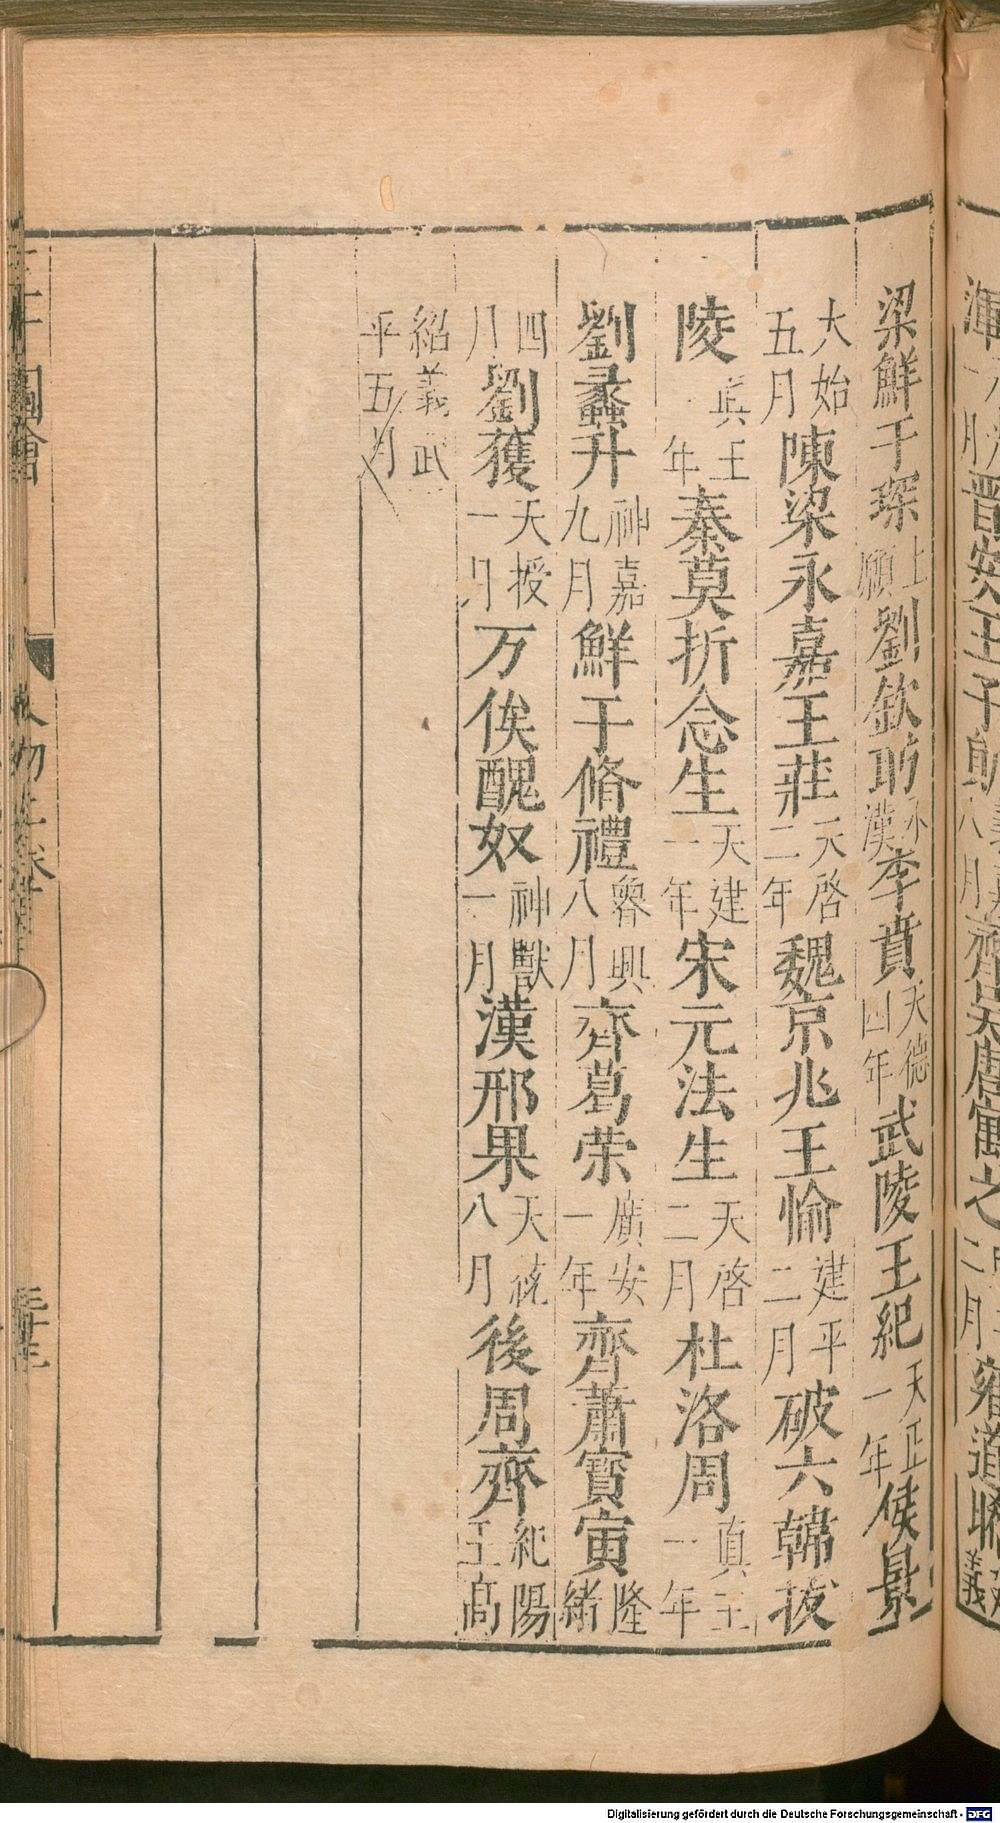 梁鮮于琛上願劉欽昉永漢李賁天德四年武陵王紀天正一年侯景
大始五月陳梁永嘉王莊天啓二年魏京兆王愉建平二月破六韓拔
陵真王年秦莫折念生天建一年宋元法生天啓二月杜洛周真王一年
劉蠡升神嘉九月鮮于脩禮魯興八月齊葛荣廣安一年齊蕭寶寅隆緒
四月劉獲天授一月万俟醜奴神獸一月漢邢果天統八月後周齊紀陽王高
紹義武平五月
Digitalisierung gefördert durch die Deutsche Forschungsgemeinschaft - DFG